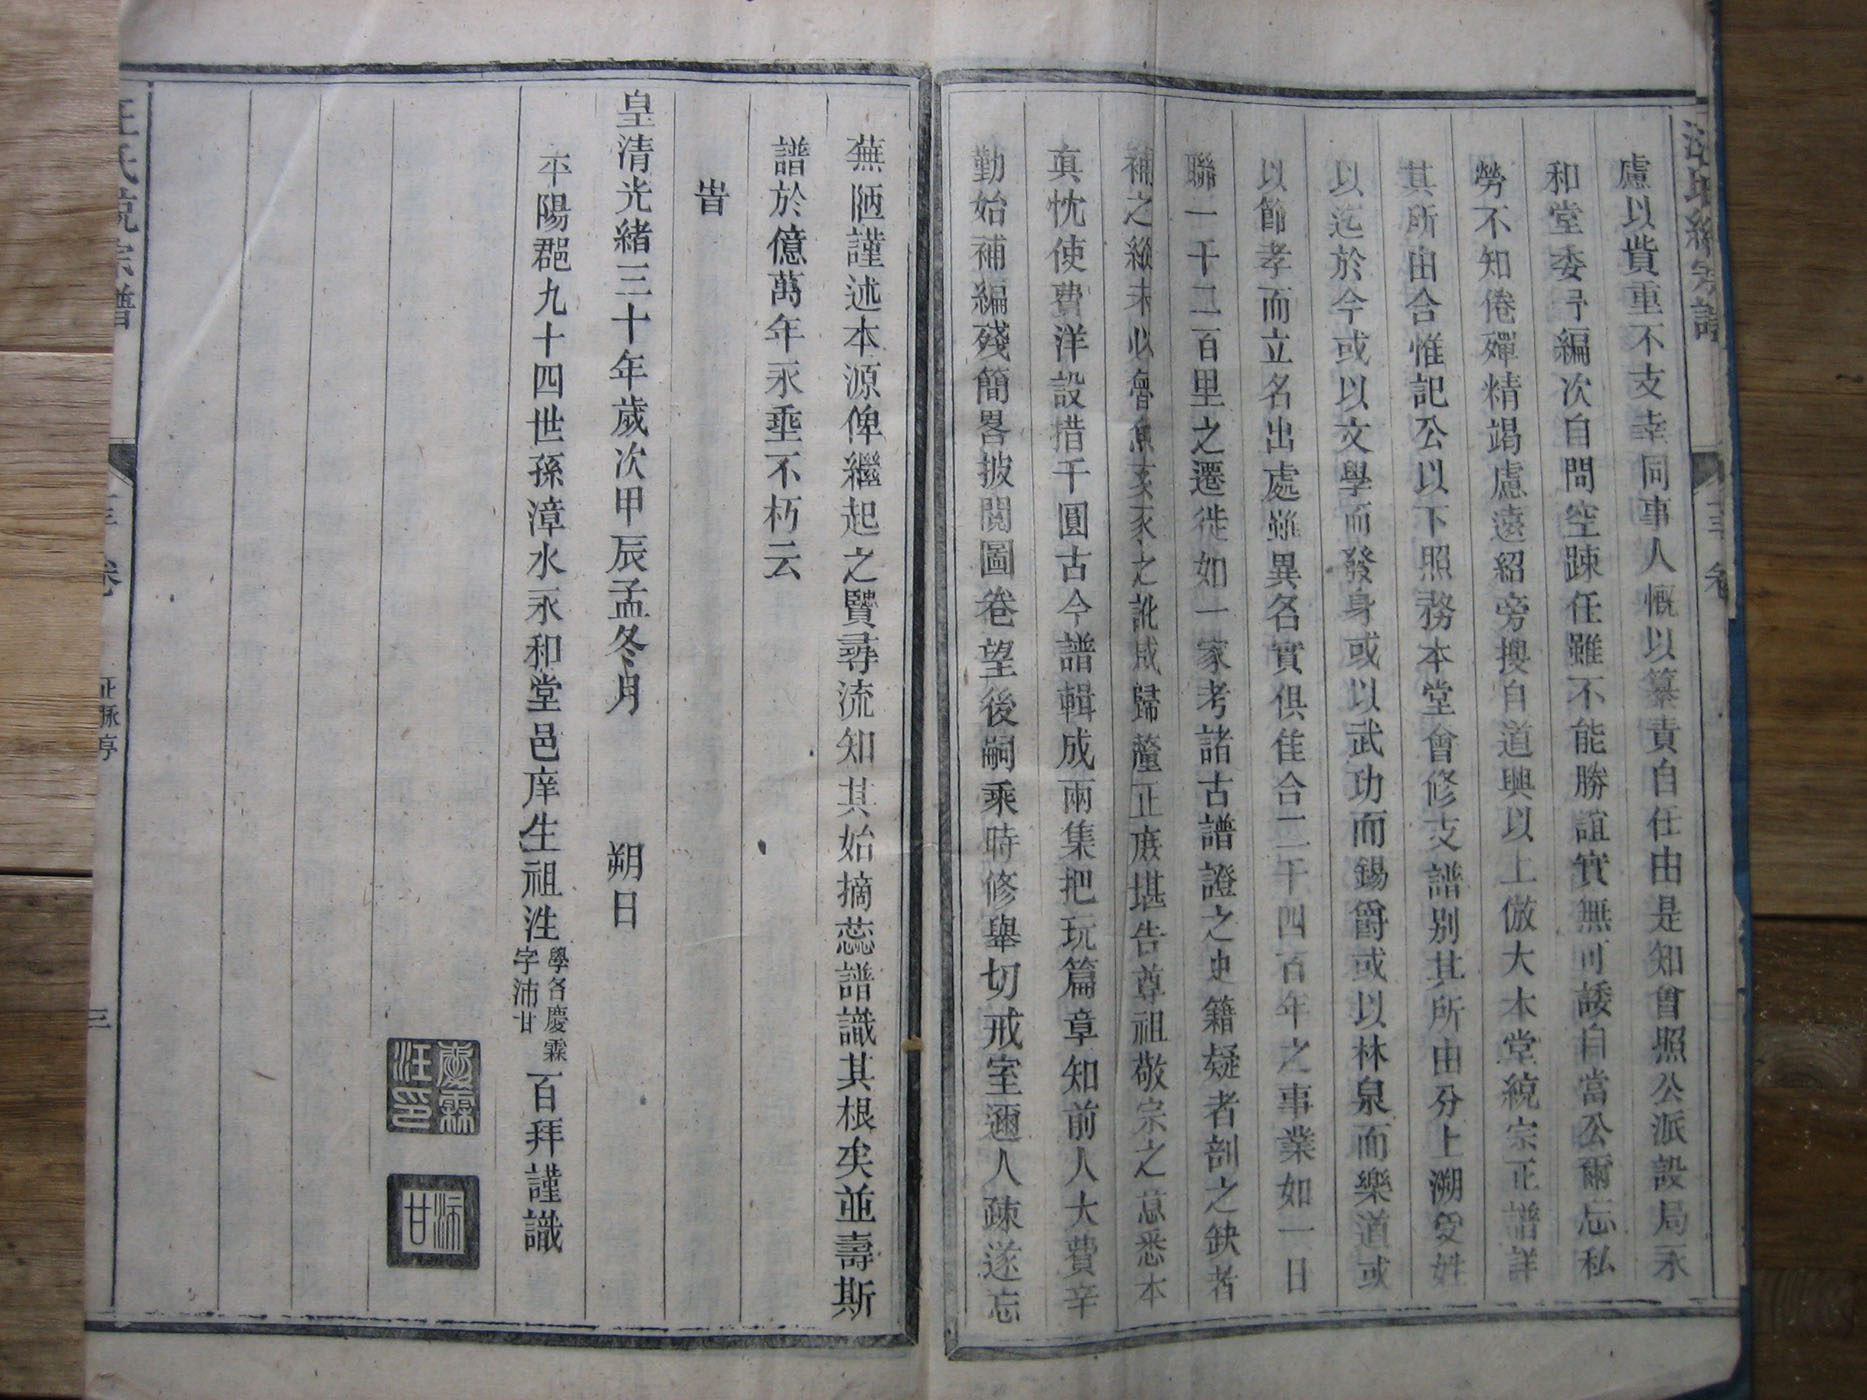 汪氏統宗譜
慮以貲重不支幸同事人慨以纂責自任由是知會照公派設局永
和堂委予編次自問空疎任雖不能勝誼實無可諉自當公爾忘私
勞不知倦殫精竭慮遠紹旁搜自道興以上倣大本堂統宗正譜詳
其所由合惟記公以下照務本堂會修支譜別其所由分上溯受姓
以迄於今或以文學而發身或以武功而錫爵或以林泉而樂道或
以節孝而立名出處雖異名實俱佳合二千四百年之事業如一日
聯一千二百里之遷徙如一家考諸古譜證之史籍疑者剖之缺者
補之絲未必魯魚亥豕之訛咸歸釐正庶堪告尊祖敬宗之意悉本
真忱使費洋設措千圓古今譜輯成兩集把玩篇章知前人大費辛
勤始補編殘簡畧披閱圖卷望後嗣乘時修舉切戒室邇人疎遂忘
蕪陋謹述本源俾繼起之賢尋流知其始摘蕊譜識其根矣並壽斯
譜於億萬年永垂不朽云
旹
皇清光緒三十年歲次甲辰孟冬月 朔日
平陽郡九十四世孫漳水永和堂邑庠生祖泩學名慶霖字沛甘百拜謹識
慶霖汪印
沛甘
汪氏統宗譜 卷 正脉序 三